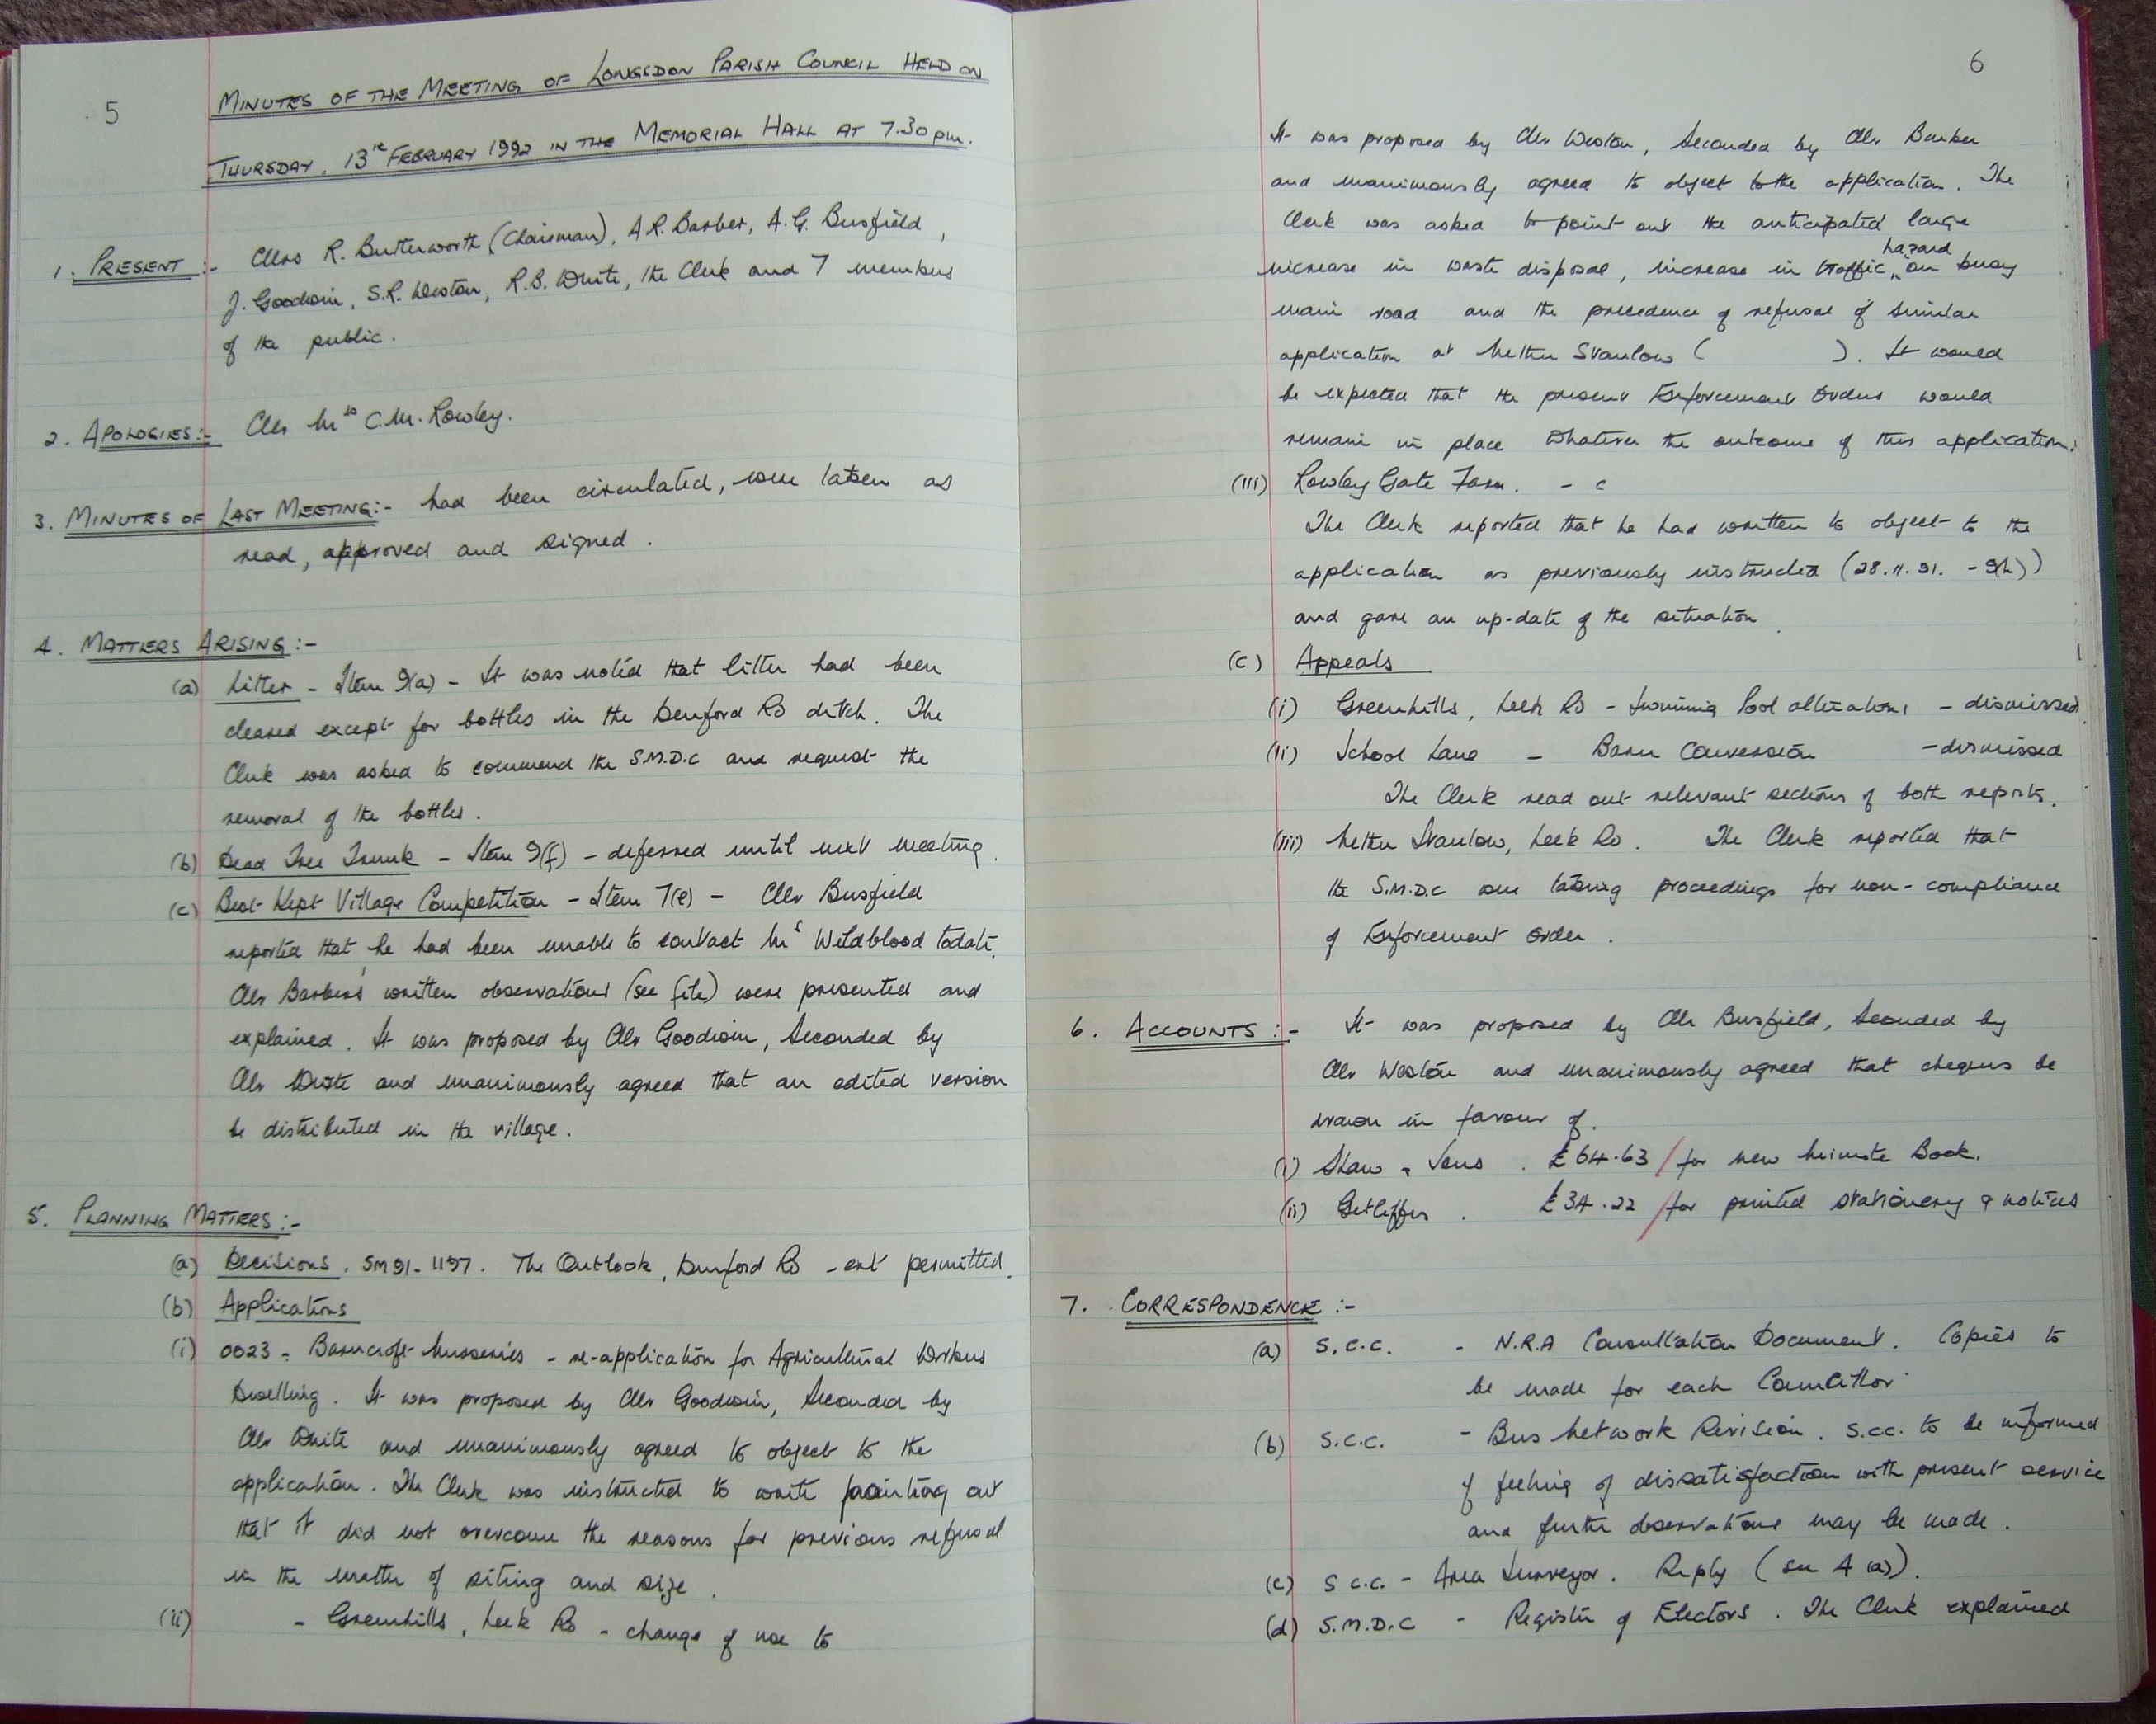 5
MINUTES OF THE MEETING OF LONGSDON PARISH COUNCIL HELD ON
THURSDAY, 13th FEBRUARY 1992 IN THE MEMORIAL HALL AT 7.30pm.
1. PRESENT :- Cllrs R. Butterworth (Chairman), A R. Barber, A. G. Busfield,
J. Goodwin, S.R. Weston, R.B. White, the Clerk and 7 members
of the public.
2. APOLOGIES:- Cllr Mrs C.M. Rowley.
3. MINUTES OF LAST MEETING:- had been circulated, were taken as
read, approved and signed.
4. MATTERS ARISING :-
(a) Litter - Item 9(a) - It was noted that litter had been
cleared except for bottles in the Denford Rd ditch. The
Clerk was asked to commend the S.M.D.C and request the
removal of the bottles.
(b) Dead Tree Trunk - Item 9(f) - deferred until next meeting.
(c) Best Kept Village Competition - Item 7(e) - Cllr Busfield
reported that he had been unable to contact Mrs Wildblood todate.
Cllr Barbers' written observations (see file) were presented and
explained. It was proposed by Cllr Goodwin, Seconded by
Cllr White and unanimously agreed that an edited version
be distributed in the village.
5. PLANNING MATTERS :-
(a) Decisions. SM91-1197. The Outlook, Denford Rd - ext permitted.
(b) Applications
(i) 0023 - Barncroft Nurseries - re-application for Agricultural Workers
Dwelling. It was proposed by Cllr Goodwin, Seconded by
Cllr White and unanimously agreed to object to the
application. The Clerk was instructed to write pointing out
that it did not overcome the reasons for previous refusal
in the matter of siting and size.
(ii) - Greenhills, Leek Rd - change of use to
6
It was proposed by Cllr Weston, Seconded by Cllr Barber
and unanimously agreed to object to the application. The
Clerk was asked to point out the anticipated large
hazard
increase in waste disposal, increase in traffic on busy
main road and the precedence of refusal of similar
application at Nether Stanlow ( ). It would
be expected that the present Enforcement Orders would
remain in place whatever the outcome of this application.
(iii) Rowley Gate Farm. - c
The Clerk reported that he had written to object to the
application as previously instructed (28.11.91. - 9(h))
and gave an up-date of the situation.
(c) Appeals
(i) Greenhills, Leek Rd - Swimming Pool alterations - dismissed
(ii) School Lane - Barn Conversion - dismissed
The Clerk read out relevant sections of both reports.
(iii) Nether Stanlow, Leek Rd. The Clerk reported that
the S.M.D.C were taking proceedings for non-compliance
of Enforcement Order.
6. ACCOUNTS :- It was proposed by Cllr Busfield, Seconded by
Cllr Weston and unanimously agreed that cheques be
drawn in favour of.
(i) Shaw & Sons. £64.63 / for new Minute Book.
(ii) Getliffes. £34.22 / for printed stationery & notices
7. CORRESPONDENCE :-
(a) S.C.C. - N.R.A Consultation Document. Copies to
be made for each Councillor.
(b) S.C.C. - Bus Network Revision. S.C.C. to be informed
of feeling of dissatisfaction with present service
and further observations may be made.
(c) S.C.C. - Area Surveyor. Reply (see 4 (a)).
(d) S.M.D.C - Register of Electors. The Clerk explained